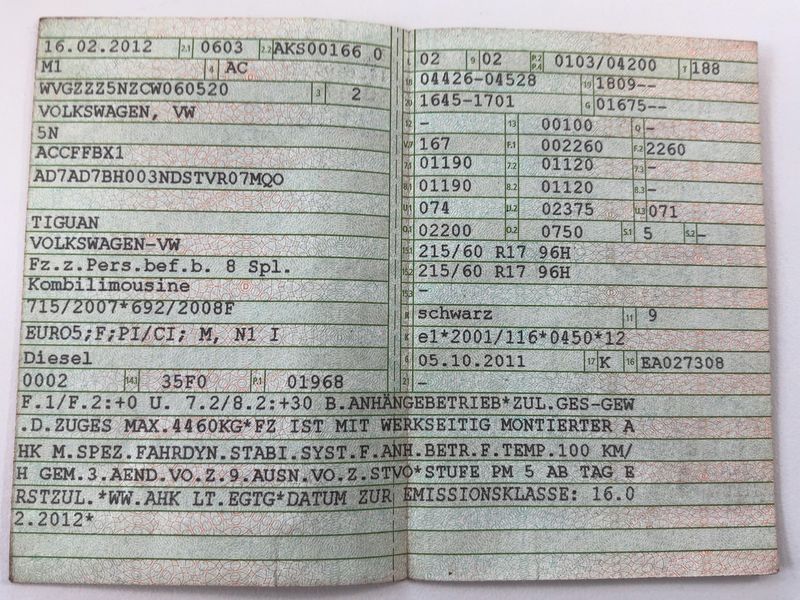 16.02.2012 2.1 0603 2.2 AKS00166 0
M1 4 AC
WVGZZZ5NZCW060520 3 2
VOLKSWAGEN, VW
5N
ACCFFBX1
AD7AD7BH003NDSTVR07MQO
TIGUAN
VOLKSWAGEN-VW
Fz.z.Pers.bef.b. 8 Spl.
Kombilimousine
715/2007*692/2008F
EURO5;F;PI/CI; M, N1 I
Diesel
0002 14.1 35F0 P.1 01968
L 02 9 02 P.2 P.4 0103/04200 T 188
18 04426-04528 19 1809--
20 1645-1701 G 01675--
12 - 13 00100 Q -
V.7 167 F.1 002260 F.2 2260
7.1 01190 7.2 01120 7.3 -
8.1 01190 8.2 01120 8.3 -
U.1 074 U.2 02375 U.3 071
O.1 02200 O.2 0750 S.1 5 S.2 -
15.1 215/60 R17 96H
15.2 215/60 R17 96H
15.3 -
R schwarz 11 9
K e1*2001/116*0450*12
6 05.10.2011 17 K 16 EA027308
21 -
F.1/F.2:+0 U. 7.2/8.2:+30 B.ANHÄNGEBETRIEB*ZUL.GES-GEW
.D.ZUGES MAX.4460KG*FZ IST MIT WERKSEITIG MONTIERTER A
HK M.SPEZ.FAHRDYN.STABI.SYST.F.ANH.BETR.F.TEMP.100 KM/
H GEM.3.AEND.VO.Z.9.AUSN.VO.Z.STVO*STUFE PM 5 AB TAG E
RSTZUL.*WW.AHK LT.EGTG*DATUM ZUR EMISSIONSKLASSE: 16.0
2.2012*